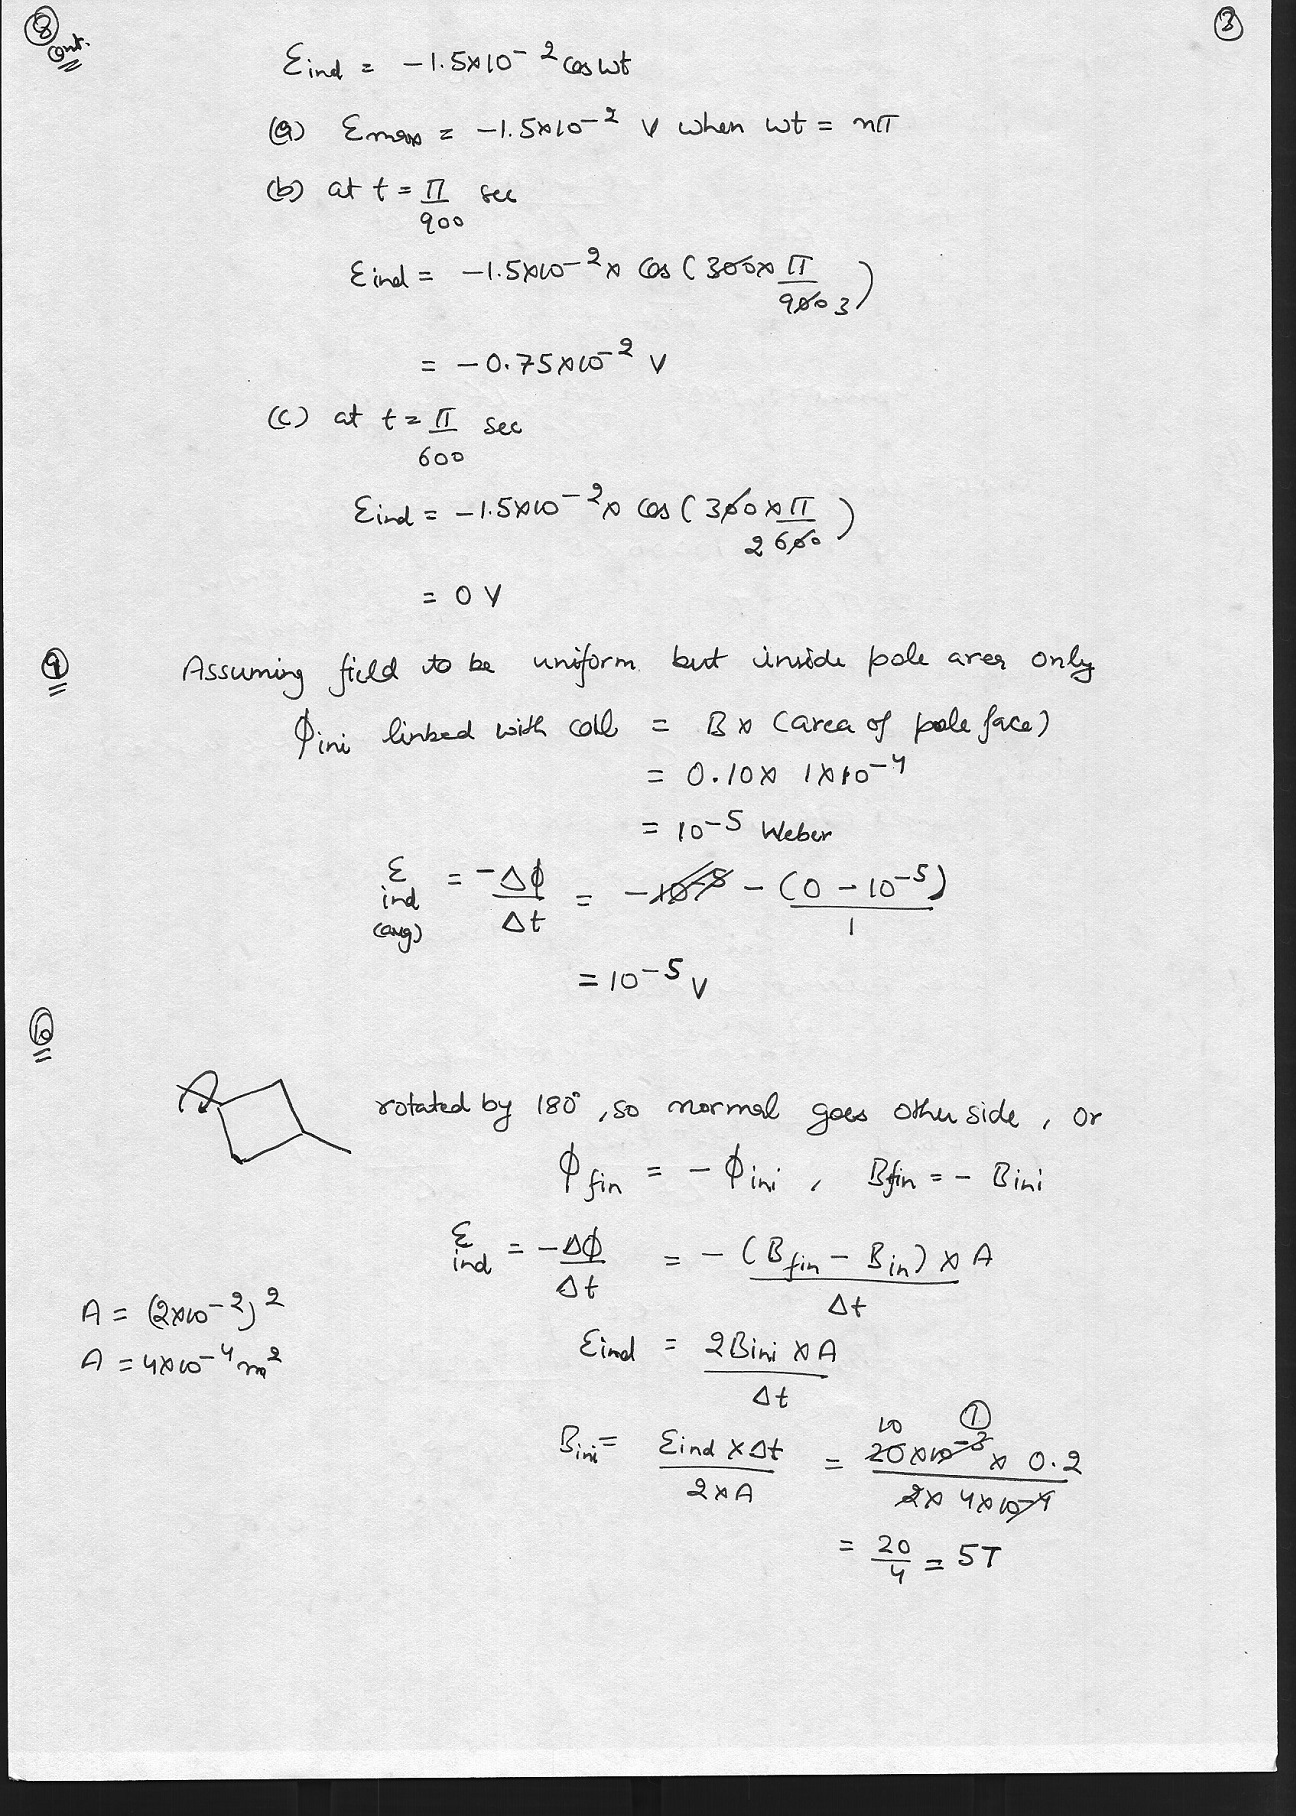 8 cont.
3
Ɛind = -1.5×10^-2 cos ωt
(a) Ɛmax = -1.5×10^-2 V when ωt = nπ
(b) at t = π/900 sec
Ɛind = -1.5×10^-2 × cos (300 × π/900 3)
= -0.75×10^-2 V
(c) at t = π/600 sec
Ɛind = -1.5×10^-2 × cos (300 × π/2 600)
= 0 V
9
Assuming field to be uniform but inside pole area only
ϕini linked with coil = B × (area of pole face)
= 0.10 × 1×10^-4
= 10^-5 Weber
Ɛind (avg) = -Δϕ/Δt = -10^-5 -(0 - 10^-5)/1
= 10^-5 V
10
rotated by 180°, so normal goes other side, or
ϕfin = -ϕini, Bfin = - Bini
Ɛind = -Δϕ/Δt = -(Bfin - Bin) × A/Δt
A = (2×10^-2)^2
Ɛind = 2Bini × A/Δt
A = 4×10^-4 m^2
Bini = Ɛind × Δt/2×A = 10 1 20×10^-3 × 0.2/2× 4×10^-4
= 20/4 = 5T